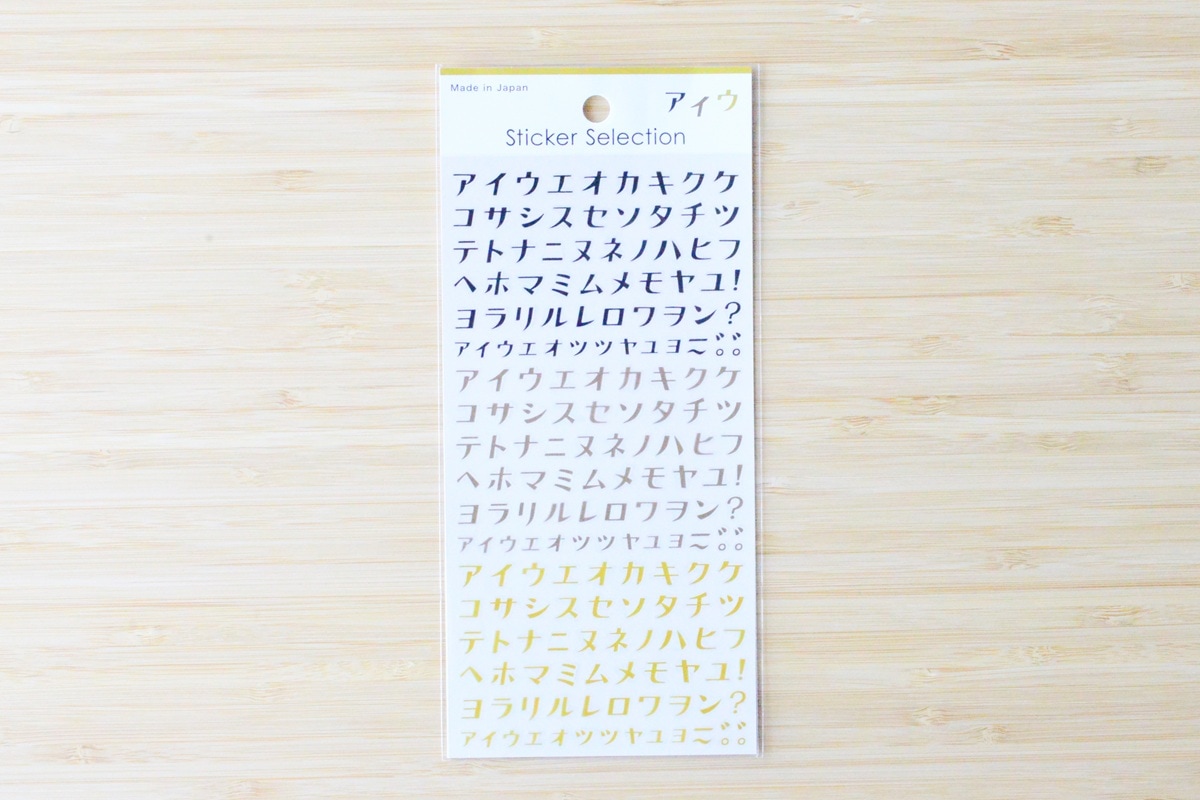 Made in Japan
アイウ
Sticker Selection
アイウエオカキクケ
コサシスセソタチツ
テトナニヌネノハヒフ
ヘホマミムメモヤユ!
ヨラリルレロワヲン?
ァィゥェォッッャュョー~゛゛。。
アイウエオカキクケ
コサシスセソタチツ
テトナニヌネノハヒフ
ヘホマミムメモヤユ!
ヨラリルレロワヲン?
ァィゥェォッッャュョー~゛゛。。
アイウエオカキクケ
コサシスセソタチツ
テトナニヌネノハヒフ
ヘホマミムメモヤユ!
ヨラリルレロワヲン?
ァィゥェォッッャュョー~゛゛。。